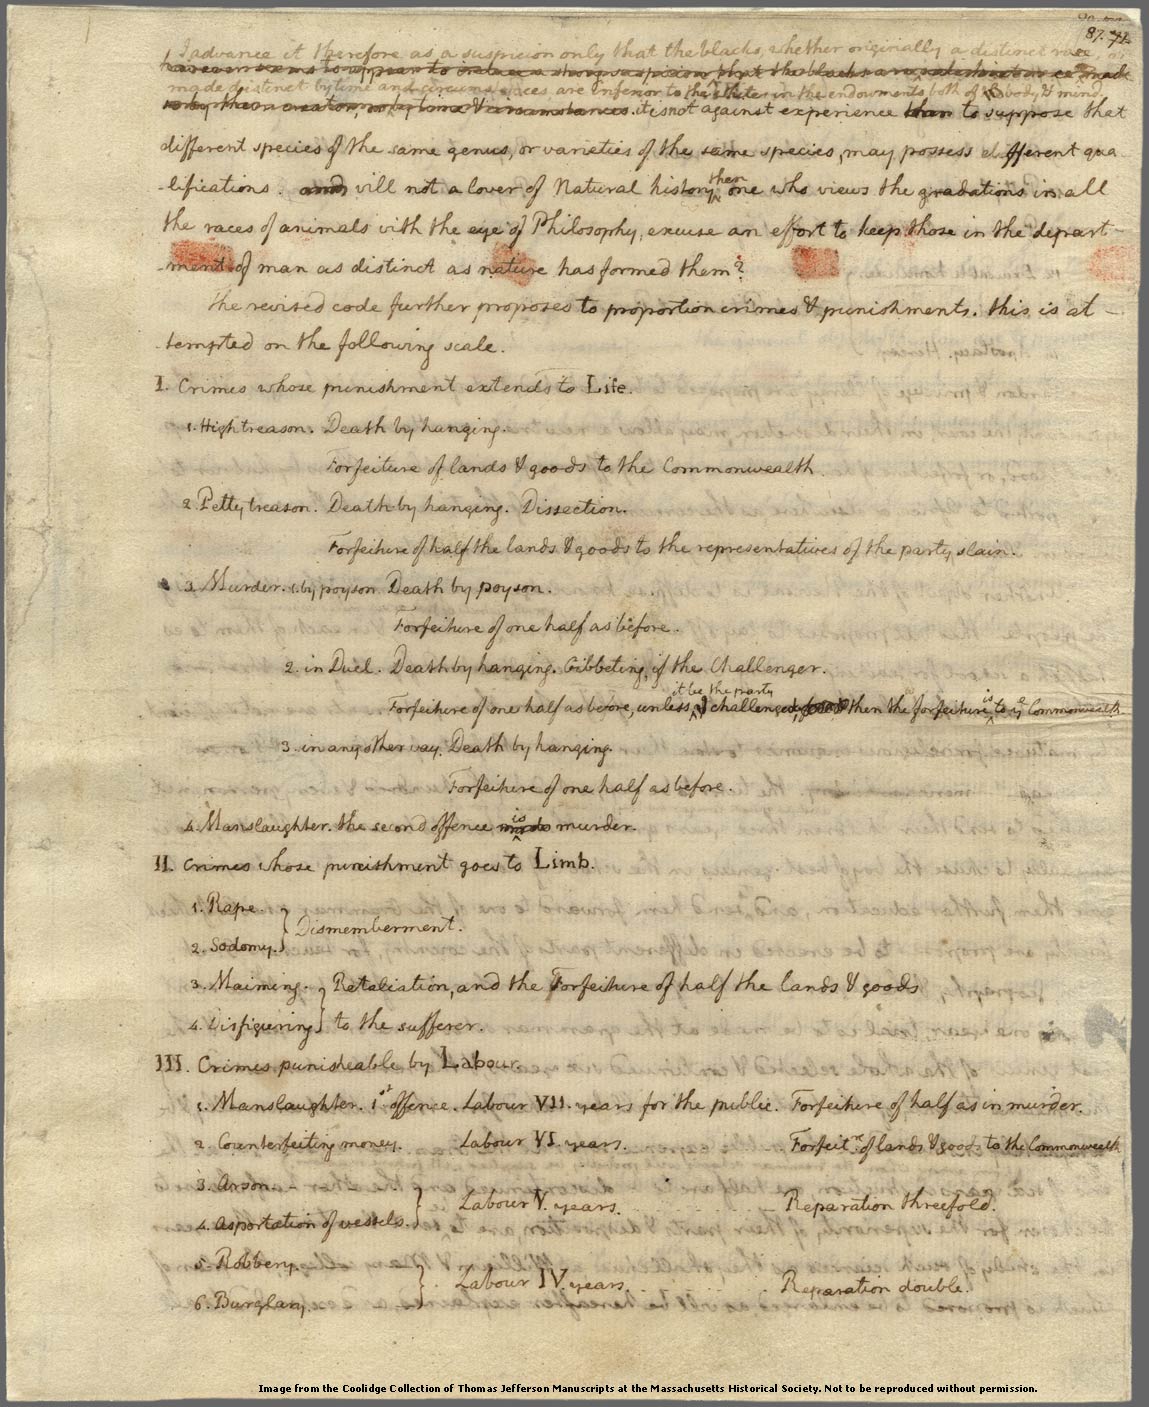 87. 72
I advance it therefore as a suspicion only that the blacks, whether originally a distinct race, or
made distinct by time and circumstances, are inferior to the whites in the endowments both of body & mind.
it is not against experience to suppose that
different species of the same genus, or varieties of the same species, may possess different qua-
-lifications. will not a lover of Natural history then, one who views the gradations in all
the races of animals with the eye of Philosophy, excuse an effort to keep those in the depart-
-ment of man as distinct as nature has formed them?
The revised code further proposes to proportion crimes & punishments. this is at-
-tempted on the following scale.
I. Crimes whose punishment extends to Life.
1. High treason. Death by hanging.
Forfeiture of lands & goods to the Commonwealth.
2. Petty treason. Death by hanging. Dissection.
Forfeiture of half the lands & goods to the representatives of the party slain.
3. Murder. 1. by poyson. Death by poyson.
Forfeiture of one half as before.
2. in Duel. Death by hanging. Gibbeting, if the Challenger.
it be the party
Forfeiture of one half as before, unless challenged, then the forfeiture is to ye Commonwealth
3. in any other way. Death by hanging.
Forfeiture of one half as before.
4. Manslaughter. the second offence is murder.
II. Crimes whose punishment goes to Limb.
1. Rape. } Dismemberment.
2. Sodomy.
3. Maiming. } Retaliation, and the Forfeiture of half the lands & goods
4. Disfiguring } to the sufferer.
III. Crimes punisheable by Labour.
1. Manslaughter. 1st offence. Labour VII. years for the public. Forfeiture of half as in murder.
2. Counterfeiting money. Labour VI. years. Forfeitre of lands & goods to the Commonwealth
3. Arson. } Labour V. years. Reparation threefold.
4. Asportation of vessels.
5. Robbery. } Labour IV. years. Reparation double.
6. Burglary.
Image from the Coolidge Collection of Thomas Jefferson Manuscripts at the Massachusetts Historical Society. Not to be reproduced without permission.